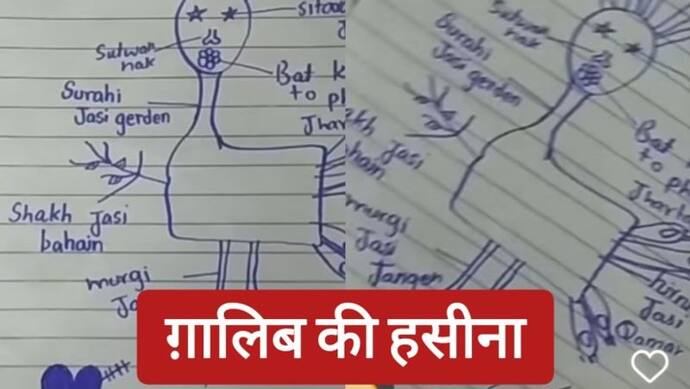 sitar
Sutwan
nak
Bat k
to ph
Jhar
Surahi
Jasi gerden
Shakh Jasi
bahain
murgi
Ja
Sutwan
nak
Surahi
Jasi gerden
Bat k
to ph
Jharh
kh Jasi
bahain
murgi
Jasi
Tangen
hirni
Jasi
Qamar
ग़ालिब की हसीना